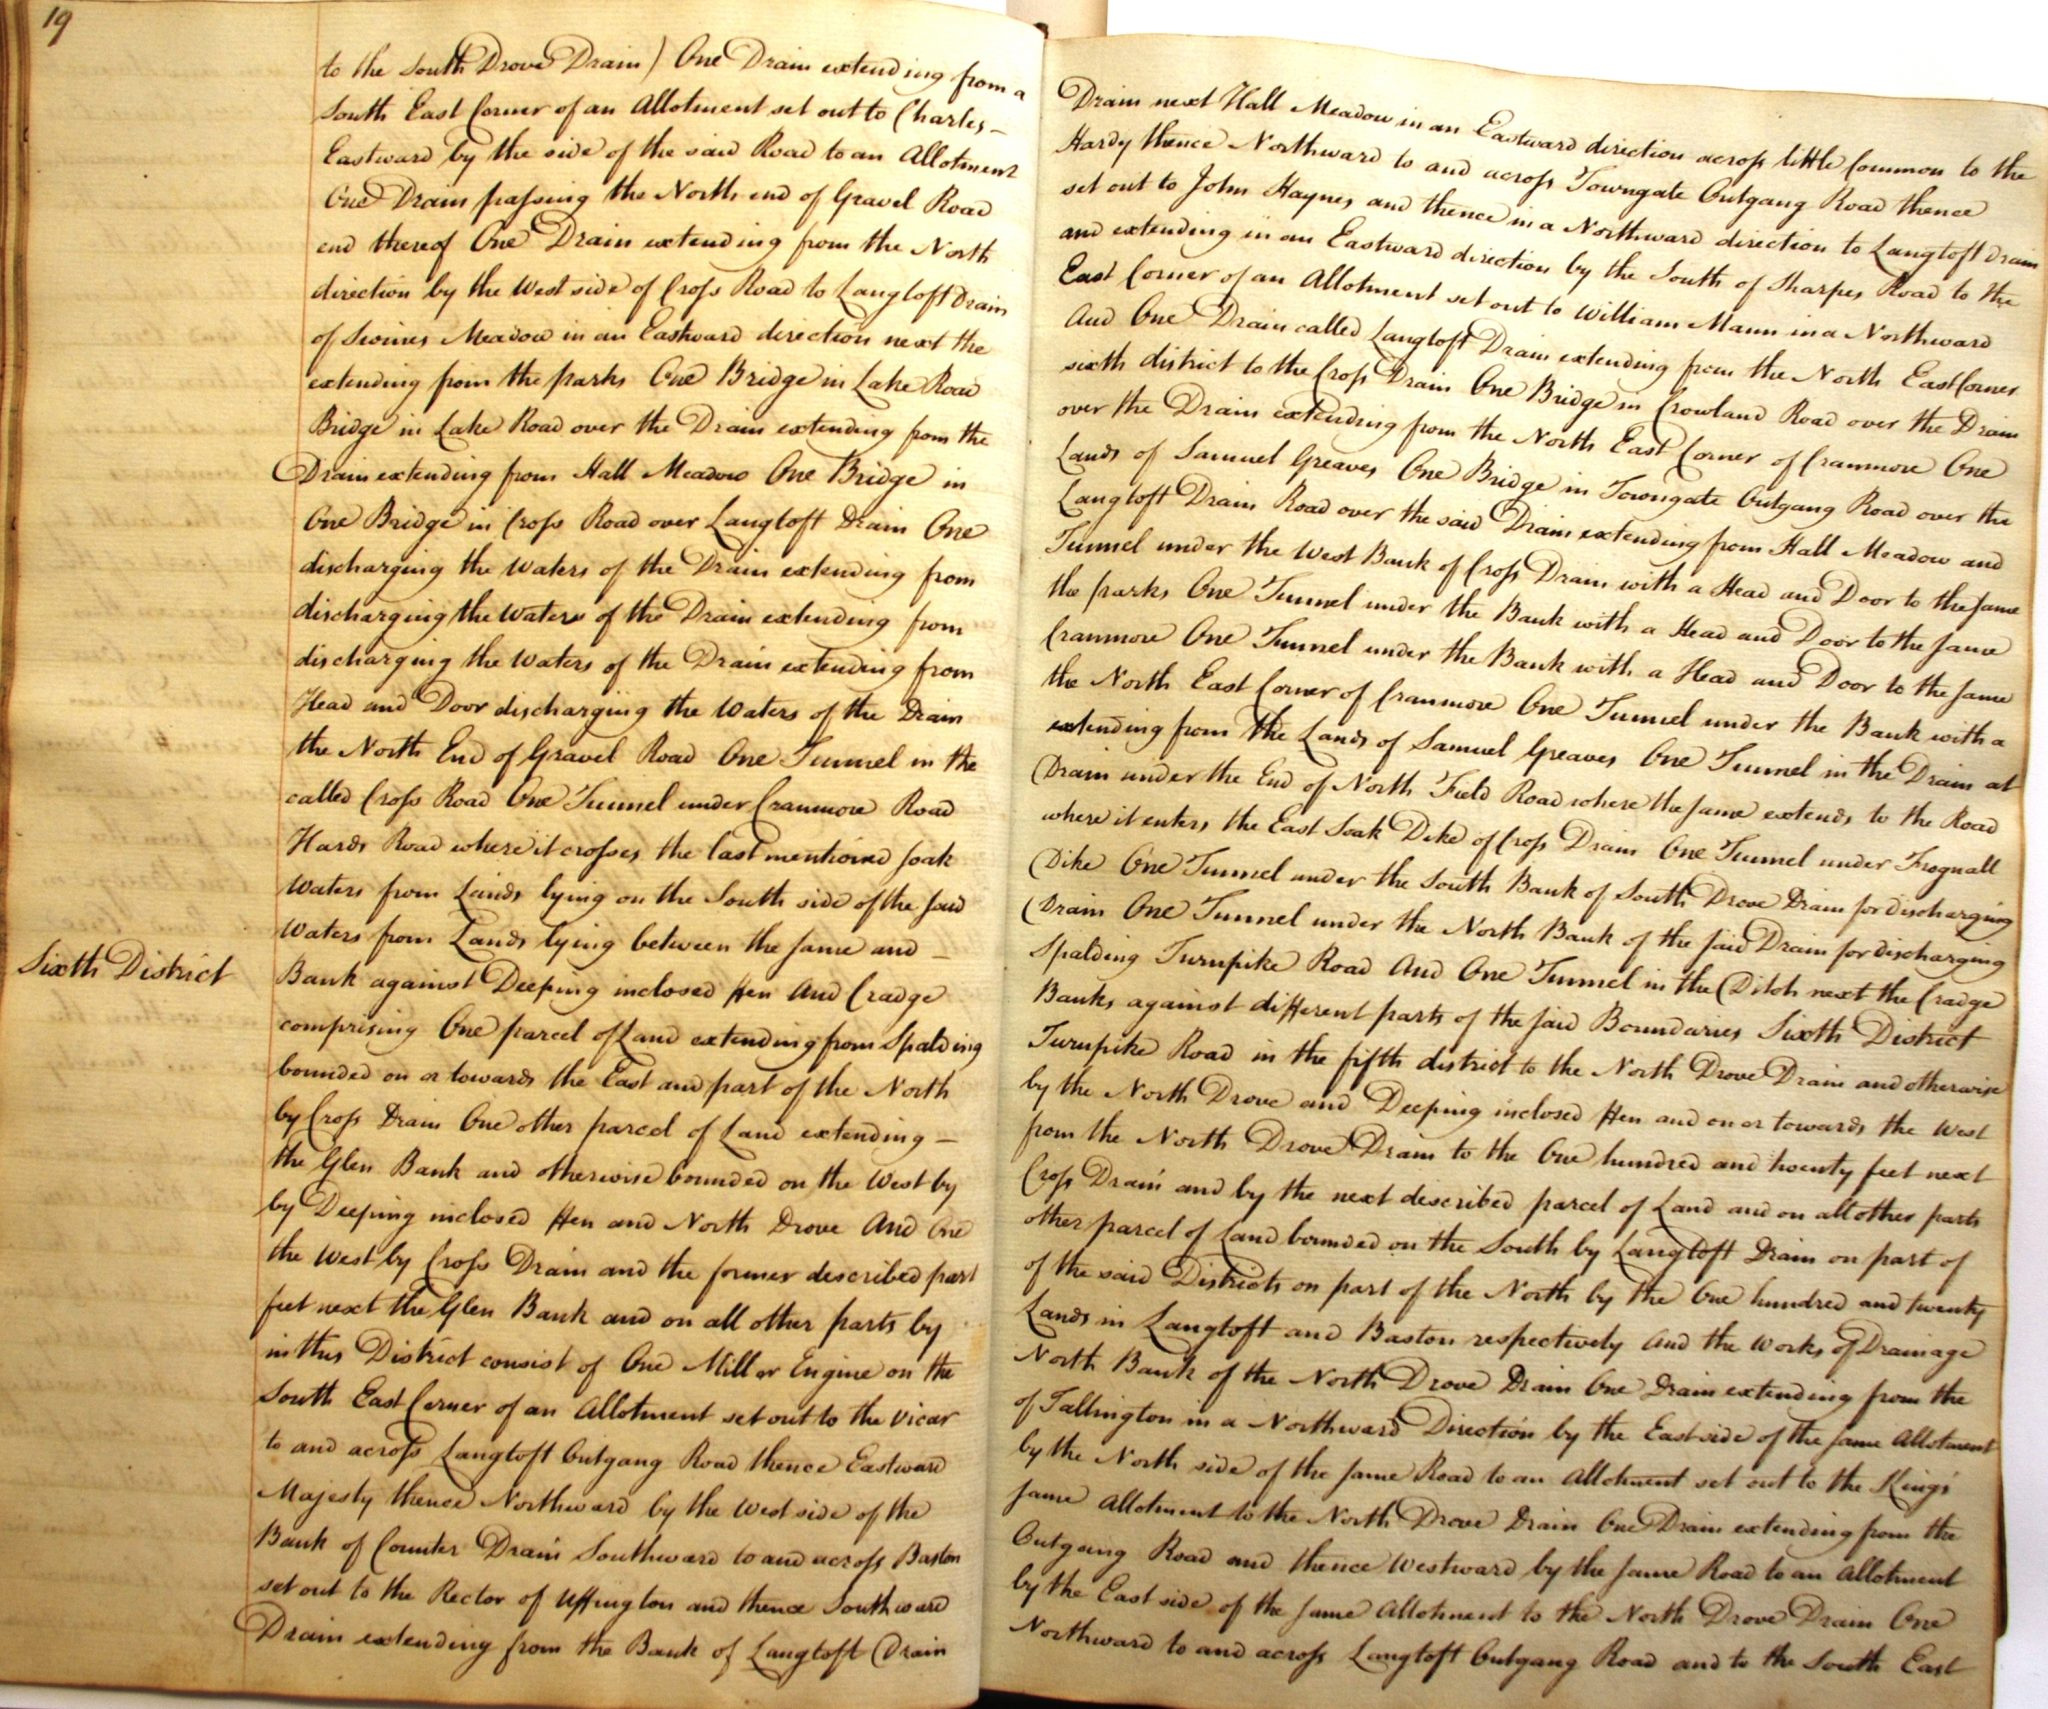 19
to the South Drove Drain) One Drain extending from a Drain next Hall Meadow in an Eastward direction across little Common to the
South East Corner of an Allotment set out to Charles – Hardy thence Northward to and across Towngate Outgang Road thence
Eastward by the side of the said Road to an Allotment set out to John Haynes and thence in a Northward direction to Langtoft Drain
One Drain passing the North end of Gravel Road and extending in an Eastward direction by the South of Sharpes Road to the
end thereof One Drain extending from the North East Corner of an Allotment set out to William Mann in a Northward
direction by the West side of Cross Road to Langtoft Drain And One Drain called Langtoft Drain extending from the North East Corner
of Swines Meadow in an Eastward direction next the sixth district to the Cross Drain One Bridge in Crowland Road over the Drain
extending from the parks One Bridge in Lake Road over the Drain extending from the North East Corner of Cranmore One
Bridge in Lake Road over the Drain extending from the Lands of Samuel Greaves One Bridge in Towngate Outgang Road over the
Drain extending from Hall Meadow One Bridge in Langtoft Drain Road over the said Drain extending from Hall Meadow and
One Bridge in Cross Road over Langtoft Drain One Tunnel under the West Bank of Cross Drain with a Head and Door to the same
discharging the Waters of the Drain extending from the parks One Tunnel under the Bank with a Head and Door to the same
discharging the Waters of the Drain extending from Cranmore One Tunnel under the Bank with a Head and Door to the same
discharging the Waters of the Drain extending from the North East Corner of Cranmore One Tunnel under the Bank with a
Head and Door discharging the Waters of the Drain extending from the Lands of Samuel Greaves One Tunnel in the Drain at
the North End of Gravel Road One Tunnel in the Drain under the End of North Field Road where the same extends to the Road
called Cross Road One Tunnel under Cranmore Road where it enters the East Soak Dike of Cross Drain One Tunnel under Frognall
Hards Road where it crosses the last mentioned soak Dike One Tunnel under the South Bank of South Drove Drain for discharging
Waters from Lands lying on the South side of the said Drain One Tunnel under the North Bank of the said Drain for discharging
Waters from Lands lying between the same and – Spalding Turnpike Road And One Tunnel in the Ditch next the Cradge
Bank against Deeping inclosed Fen And Cradge Banks against different parts of the said Boundaries Sixth District
Sixth District
comprising One parcel of Land extending from Spalding Turnpike Road in the fifth district to the North Drove Drain and otherwise
bounded on or towards the East and part of the North by the North Drove and Deeping inclosed Fen and on or towards the West
by Cross Drain One other parcel of Land extending – from the North Drove Drain to the One hundred and twenty feet next
the Glen Bank and otherwise bounded on the West by Cross Drain and by the next described parcel of Land and on all other parts
by Deeping inclosed Fen and North Drove And One other parcel of Land bounded on the South by Langtoft Drain on part of
the West by Cross Drain and the former described part of the said Districts on part of the North by the One hundred and twenty
feet next the Glen Bank and on all other parts by Lands in Langtoft and Baston respectively And the Works of Drainage
in this District consist of One Mill or Engine on the North Bank of the North Drove Drain One Drain extending from the
South East Corner of an Allotment set out to the Vicar of Tallington in a Northward Direction by the East side of the same Allotment
to and across Langtoft Outgang Road thence Eastward by the North side of the same Road to an Allotment set out to the King's
Majesty thence Northward by the West side of the same Allotment to the North Drove Drain One Drain extending from the
Bank of Counter Drain Southward to and across Baston Outgang Road and thence Westward by the same Road to an Allotment
set out to the Rector of Uffington and thence Southward by the East side of the same Allotment to the North Drove Drain One
Drain extending from the Bank of Langtoft Drain Northward to and across Langtoft Outgang Road and to the South East